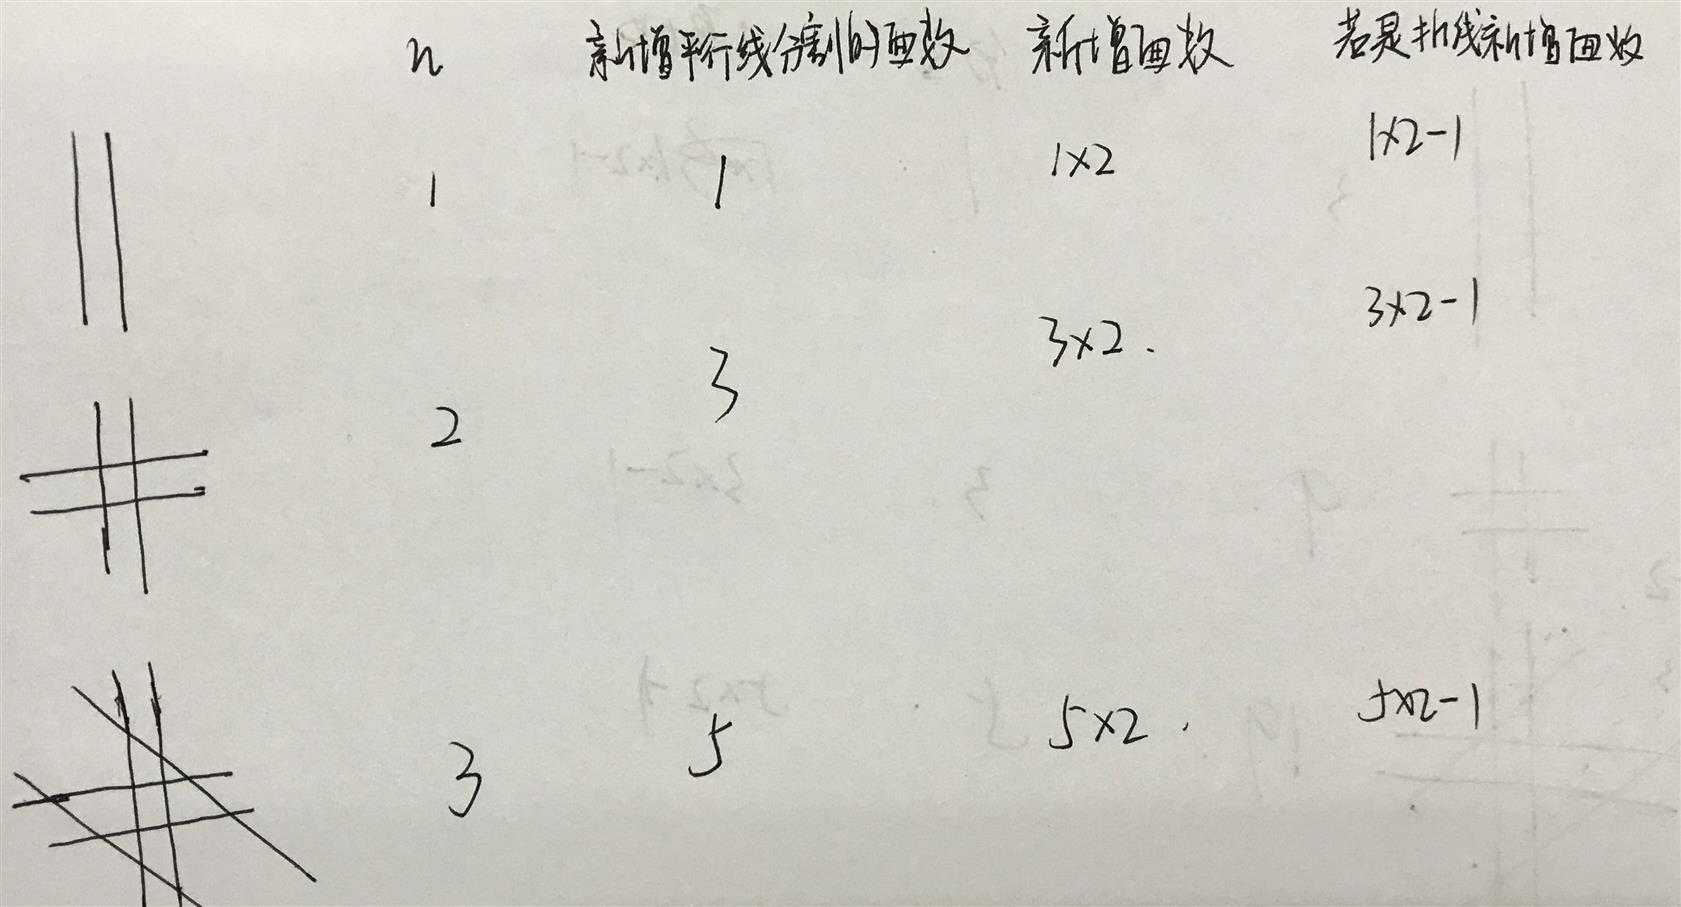 n 新增平行线分割的面数 新增面数 若是折线新增面数
1 1 1×2 1×2-1
2 3 3×2. 3×2-1
3 5 5×2. 5×2-1